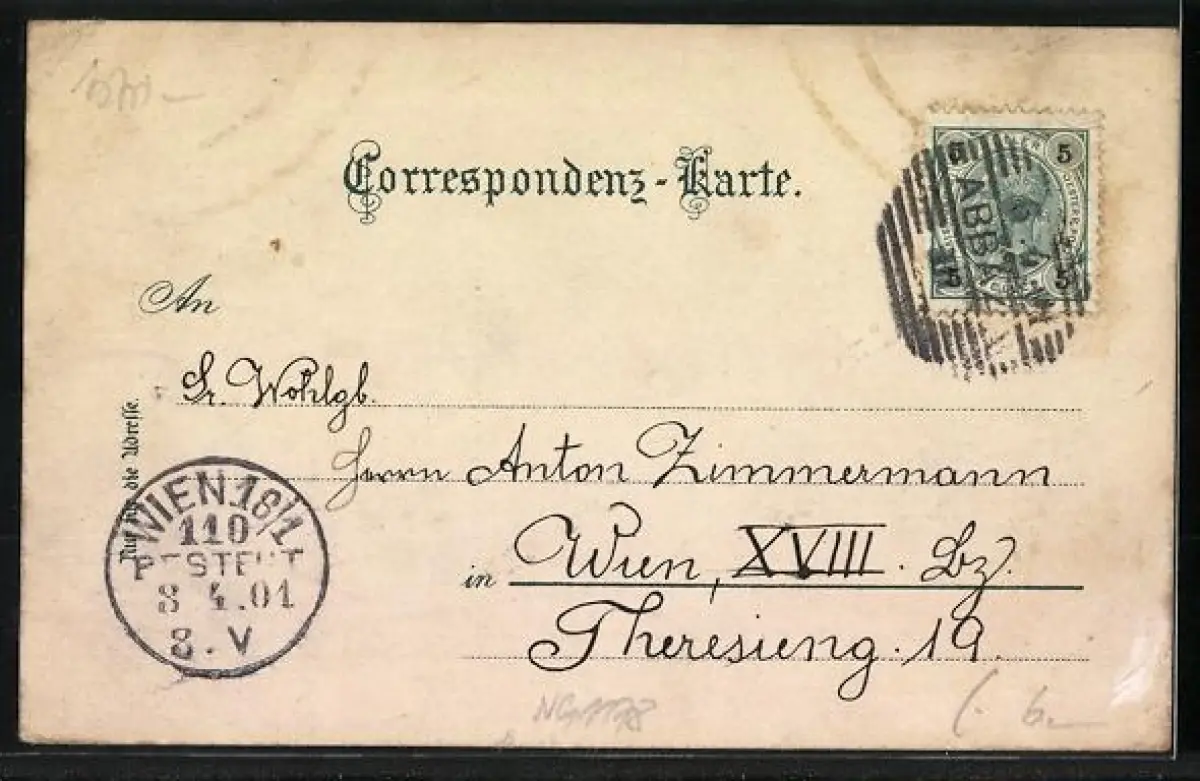 Correspondenz-Karte.
5 5
5 5
ABBAZIA
An
Sr. Wohlgb.
Herrn Anton Zimmermann
in Wien, XVIII. Bz.
Theresieng. 19.
Nur für die Adresse.
WIEN 18/1
110
BESTELLT
8 4.01
8.V